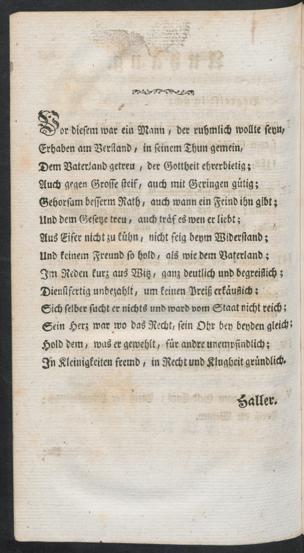 Vor diesem war ein Mann, der ruhmlich wollte seyn,
Erhaben am Verstand, in seinem Thun gemein,
Dem Vaterland getreu, der Gottheit ehrerbietig;
Auch gegen Grosse steif, auch mit Geringen gütig;
Gehorsam besserm Rath, auch wann ein Feind ihn gibt;
Und dem Gesetze treu, auch träf es wen er liebt;
Aus Eifer nicht zu kühn, nicht feig beym Widerstand;
Und keinem Freund so hold, als wie dem Vaterland;
Im Reden kurz aus Witz, ganz deutlich und begreiflich;
Dienstfertig unbezahlt, um keinen Preiß erkäuflich;
Sich selber sucht er nichts und ward vom Staat nicht reich;
Sein Herz war wo das Recht, sein Ohr bey beyden gleich;
Hold dem, was er gewehlt, für andre unempfindlich;
In Kleinigkeiten fremd, in Recht und Klugheit gründlich.
Haller.